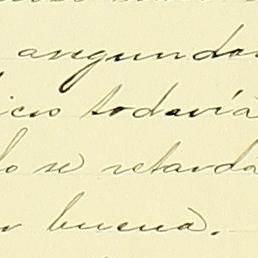 angundo
todavía
lo se retarda
buena.